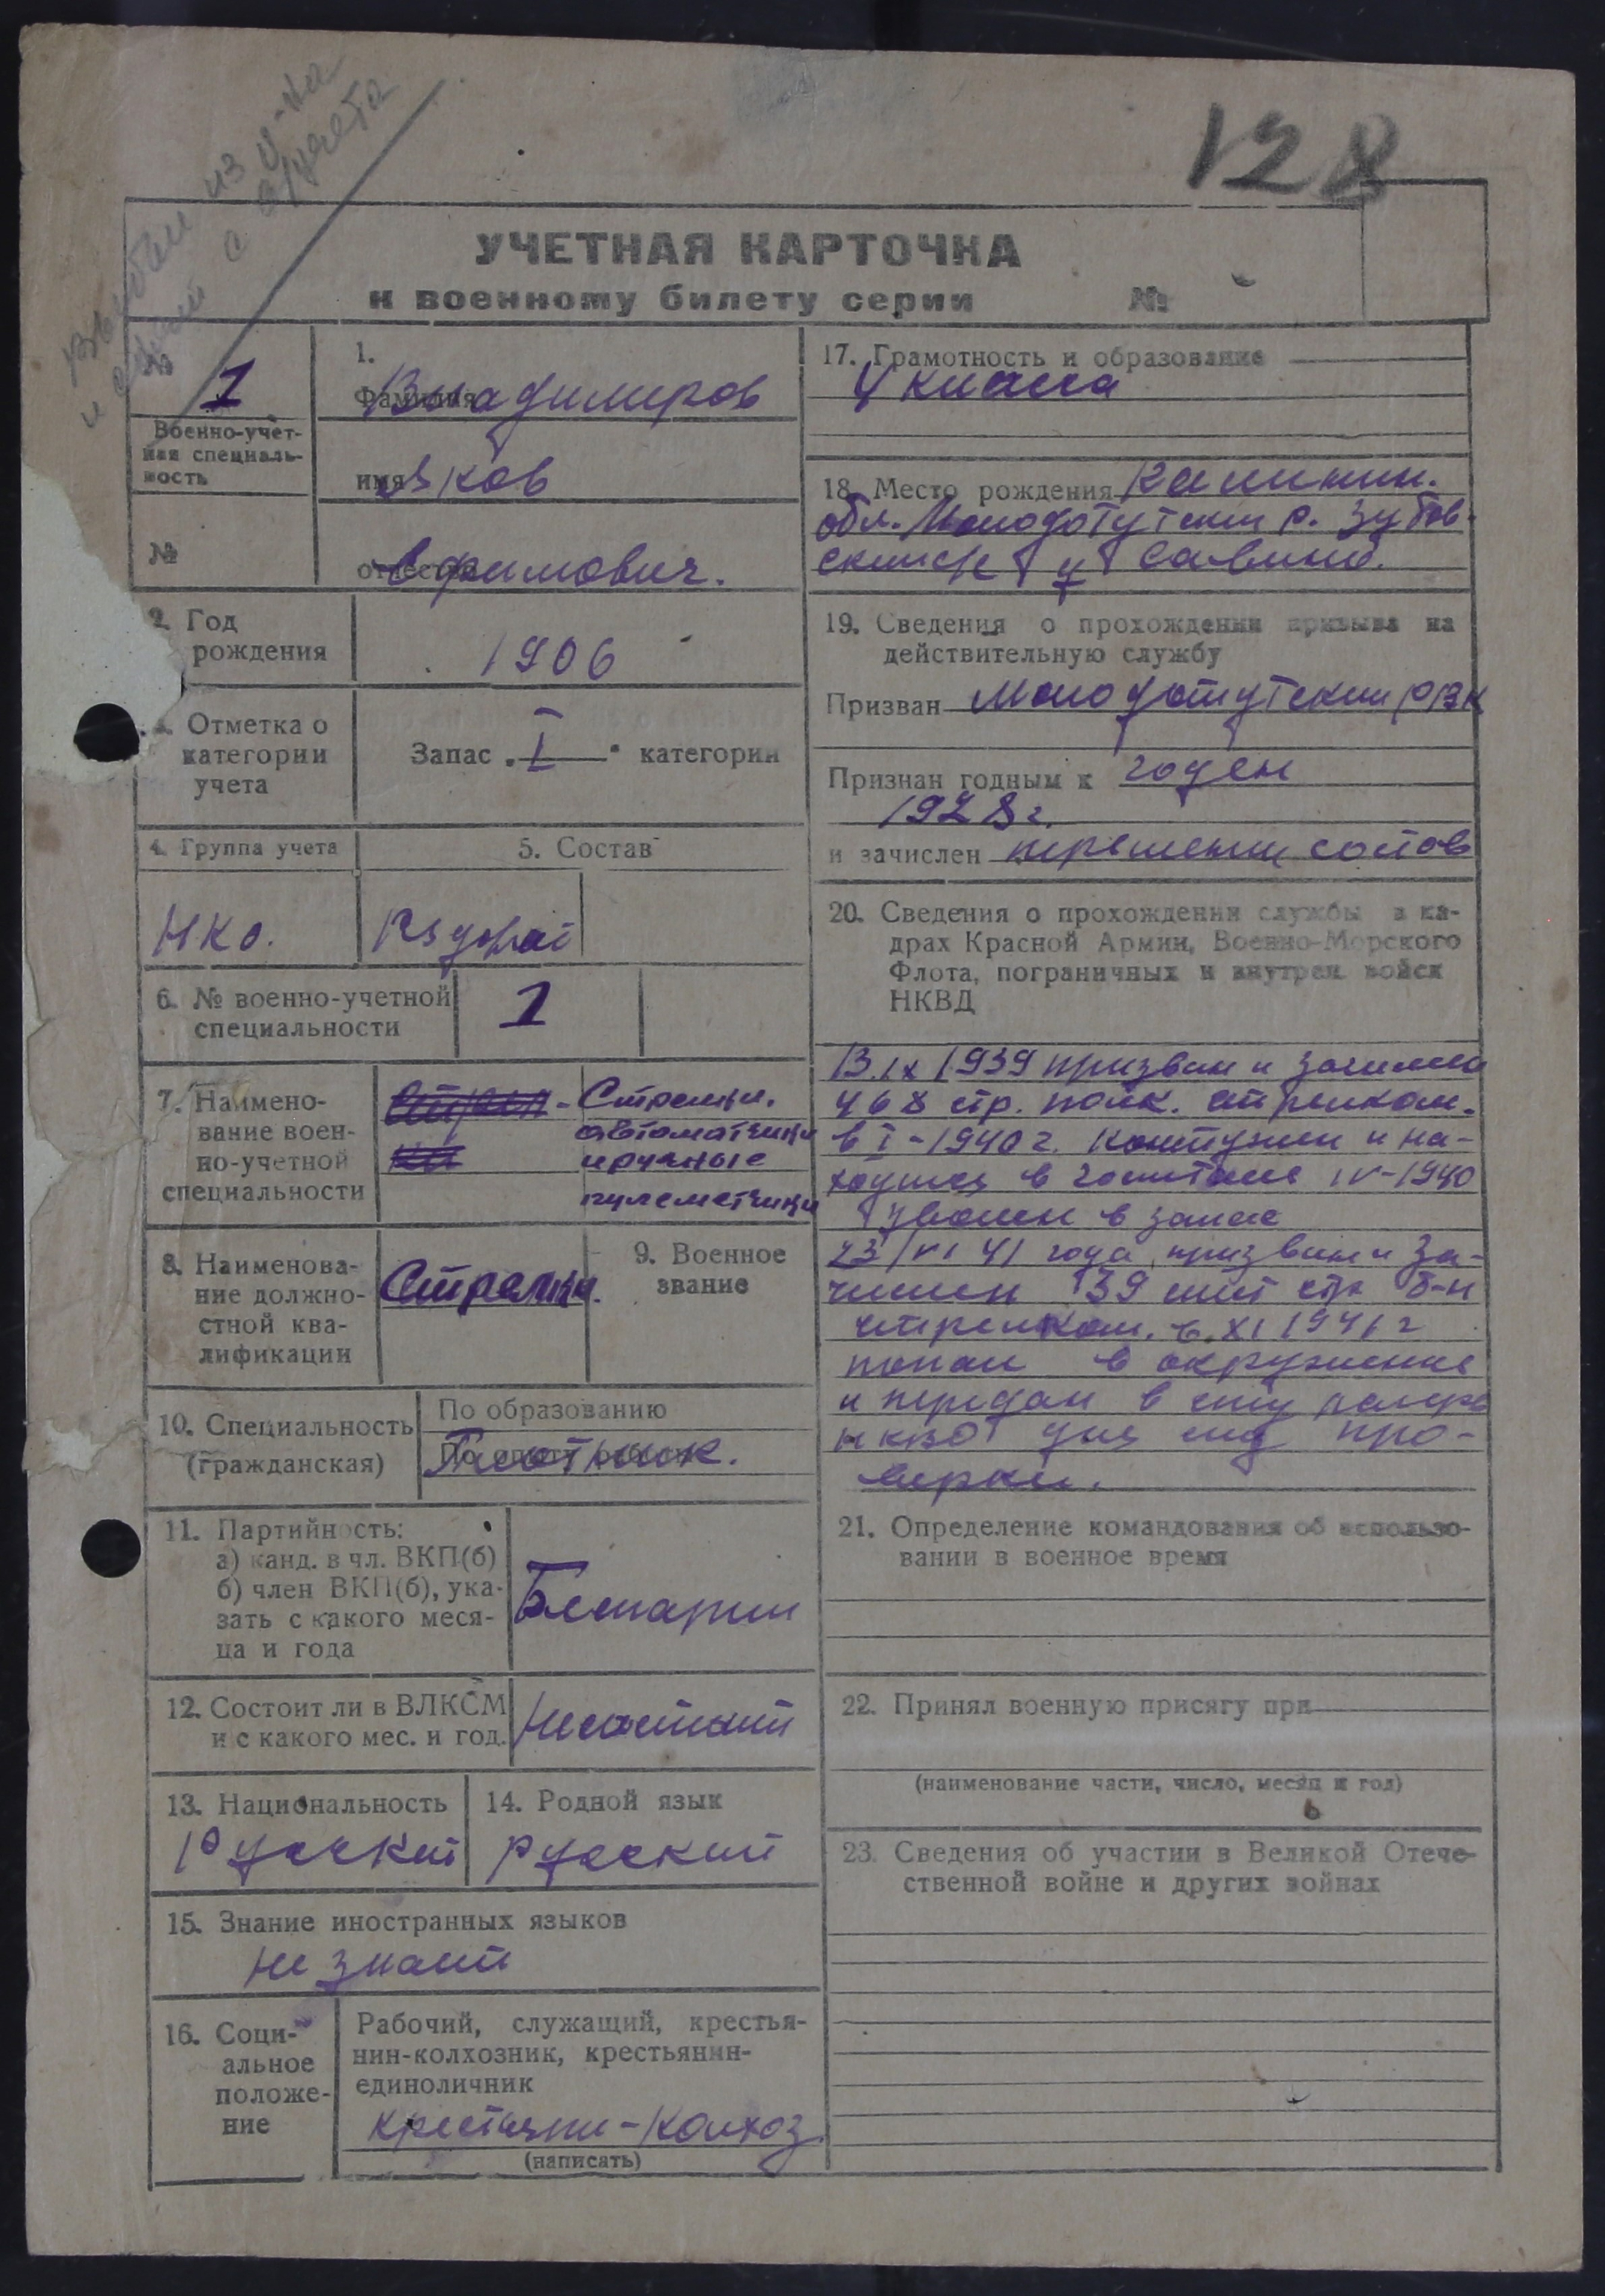 128
выбыл из у-на
и снят с с/учета
УЧЕТНАЯ КАРТОЧКА
к военному билету серии №
1
Военно-учет-
ная специаль-
ность
№
1.
Фамилия Владимиров
имя Яков
отчество Ефимович.
2. Год
рождения
1906
3. Отметка о
категории
учета
Запас „I“ категории
4. Группа учета
5. Состав
НКО.
Рядовой
6. № военно-учетной
специальности
1
7. Наимено-
вание воен-
но-учетной
специальности
Стрелки.
автоматчики
и ручные
пулеметчики
8. Наименова-
ние должно-
стной ква-
лификации
Стрелки.
9. Военное
звание
10. Специальность
(гражданская)
По образованию
Плотник.
11. Партийность:
а) канд. в чл. ВКП(б)
б) член ВКП(б), ука-
зать с какого меся-
ца и года
Беспартии
12. Состоит ли в ВЛКСМ
и с какого мес. и год.
Несостоит
13. Национальность
Русский
14. Родной язык
русский
15. Знание иностранных языков
не знает
16. Соци-
альное
положе-
ние
Рабочий, служащий, крестья-
нин-колхозник, крестьянин-
единоличник
крестьянин-колхоз
(написать)
17. Грамотность и образование
4 класса
18. Место рождения Калинин.
обл. Молодотутский р. Зубов
ский с/с д Савино.
19. Сведения о прохождении призыва на
действительную службу
Призван Молодотутским РВК
Признан годным к годен
1928 г.
и зачислен переменный состав
20. Сведения о прохождении службы в ка-
драх Красной Армии, Военно-Морского
Флота, пограничных и внутрен. войск
НКВД
13.IX 1939 призван и зачислен
468 стр. полк. стрелком.
в I-1940 г. контужен и на-
ходился в госпитале IV-1940
уволен в запас
23/VI 41 года призван и за-
числен 39 стр б-н
стрелком. в XI 1941 г
попал в окружение
и передан в спец лагерь
НКВД для след про-
верки.
21. Определение командования об использо-
вании в военное время
22. Принял военную присягу при
(наименование части, число, месяц и год)
23. Сведения об участии в Великой Отече-
ственной войне и других войнах